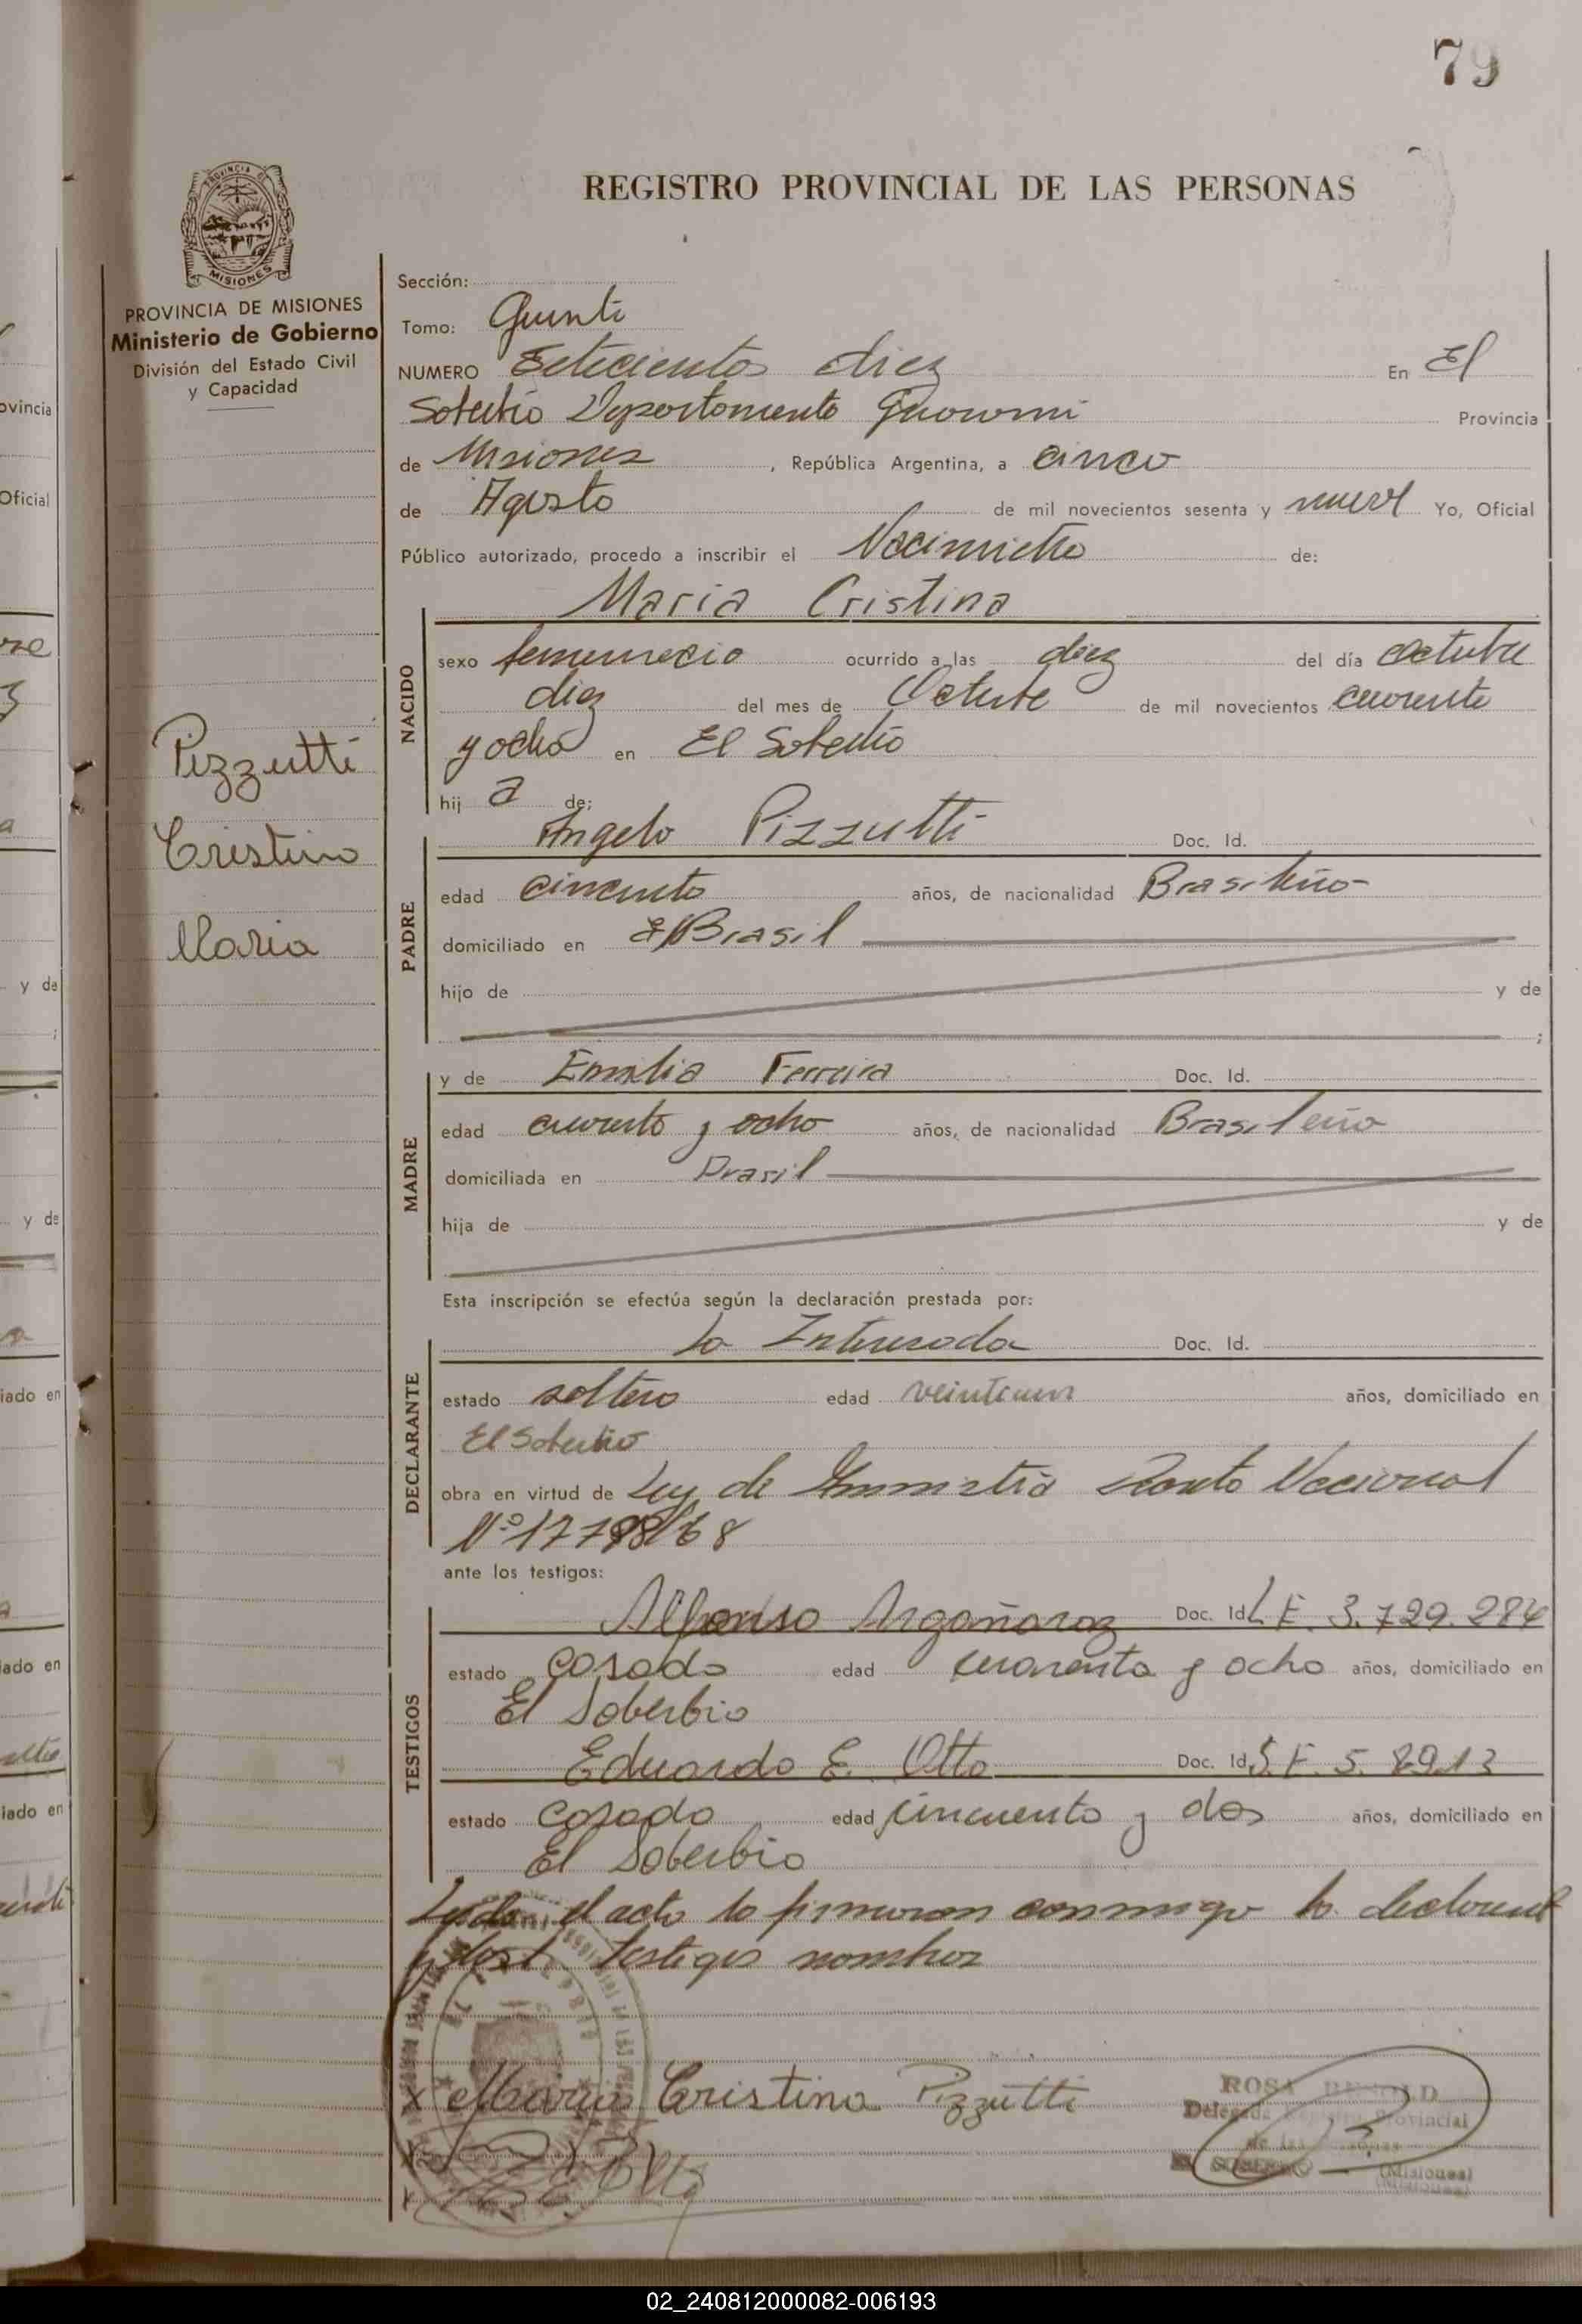 79
REGISTRO PROVINCIAL DE LAS PERSONAS
PROVINCIA DE
MISIONES
PROVINCIA DE MISIONES
Ministerio de Gobierno
División del Estado Civil
y Capacidad
Pizzutti
Cristina
Maria
Sección:
Tomo: Quinto
NUMERO Setecientos diez En El
Soberbio Departamento Guarani Provincia
de Misiones, República Argentina, a cinco
de Agosto de mil novecientos sesenta y nueve Yo, Oficial
Público autorizado, procedo a inscribir el Nacimiento de:
Maria Cristina
NACIDO
sexo ocurrido a las diez del día octubre
diez del mes de Octubre de mil novecientos cuarenta
y ocho en El Soberbio
hij a de:
PADRE
Angelo Pizzutti Doc. Id.
edad cincuenta años, de nacionalidad Brasileño
domiciliado en Brasil
hijo de y de
;
MADRE
y de Emilia Ferreira Doc. Id.
edad cuarenta y ocho años, de nacionalidad Brasileña
domiciliada en Brasil
hija de y de
Esta inscripción se efectúa según la declaración prestada por:
DECLARANTE
La Interesada Doc. Id.
estado soltera edad veintiun años, domiciliado en
El Soberbio
obra en virtud de Ley de Amnistia Nacional
Nº 17798/68
ante los testigos:
TESTIGOS
Alfonso Argañaraz Doc. Id. L E. 3.729.284
estado casado edad cuarenta y ocho años, domiciliado en
El Soberbio
Eduardo E. Otto Doc. Id.
estado casado edad cincuenta y dos años, domiciliado en
El Soberbio
el acta la firmaron conmigo la
testigos
x Maria Cristina Pizzutti
ROSA
Delegada Provincial
(Misiones)
ovincia
Oficial
y de
;
y de
iado en
ado en
iado en
02_240812000082-006193